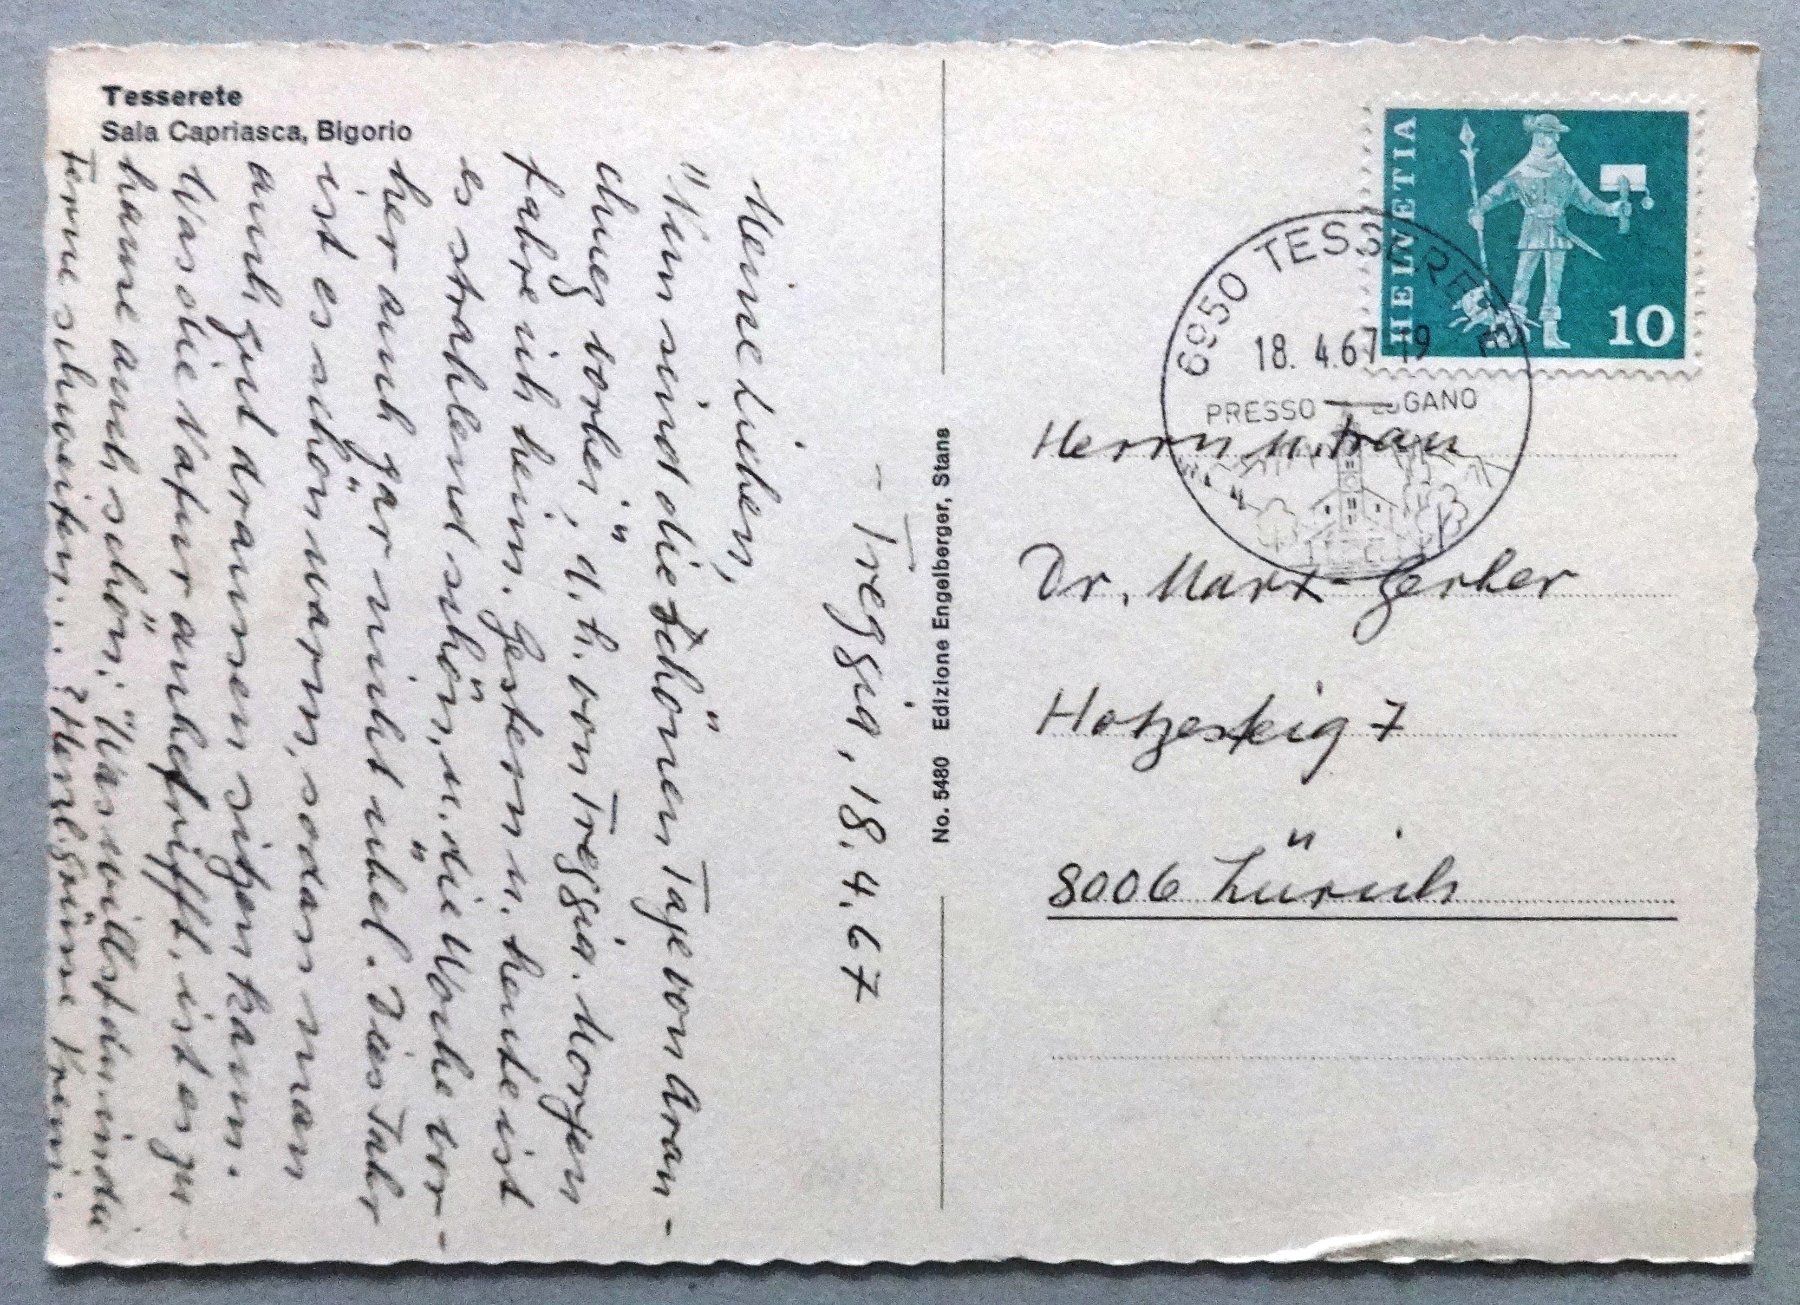 Tesserete
Sala Capriasca, Bigorio
- Treggia, 18.4.67
Meine Lieben,
"Nun sind die schönen Tage von Aran-
chuez vorbei", d.h. von Treggia. Morgen
fahre ich heim. Gestern u. heute ist
es strahlend schön, u. die Woche vor-
her auch gar nicht übel. Dies Jahr
ist es schön warm, sodass man
auch gut draussen sitzen kann.
Was die Natur anbetrifft, ist es zu-
hause auch schön: "Was willst du in die
Ferne schweifen..."? Herzl. Grüsse
No. 5480 Edizione Engelberger, Stans
HELVETIA
10
6950 TESSERETE
18. 4.67 19
PRESSO LUGANO
Herrn u. Frau
Dr. Marx-Gerber
Hotzesteig 7
8006 Zürich